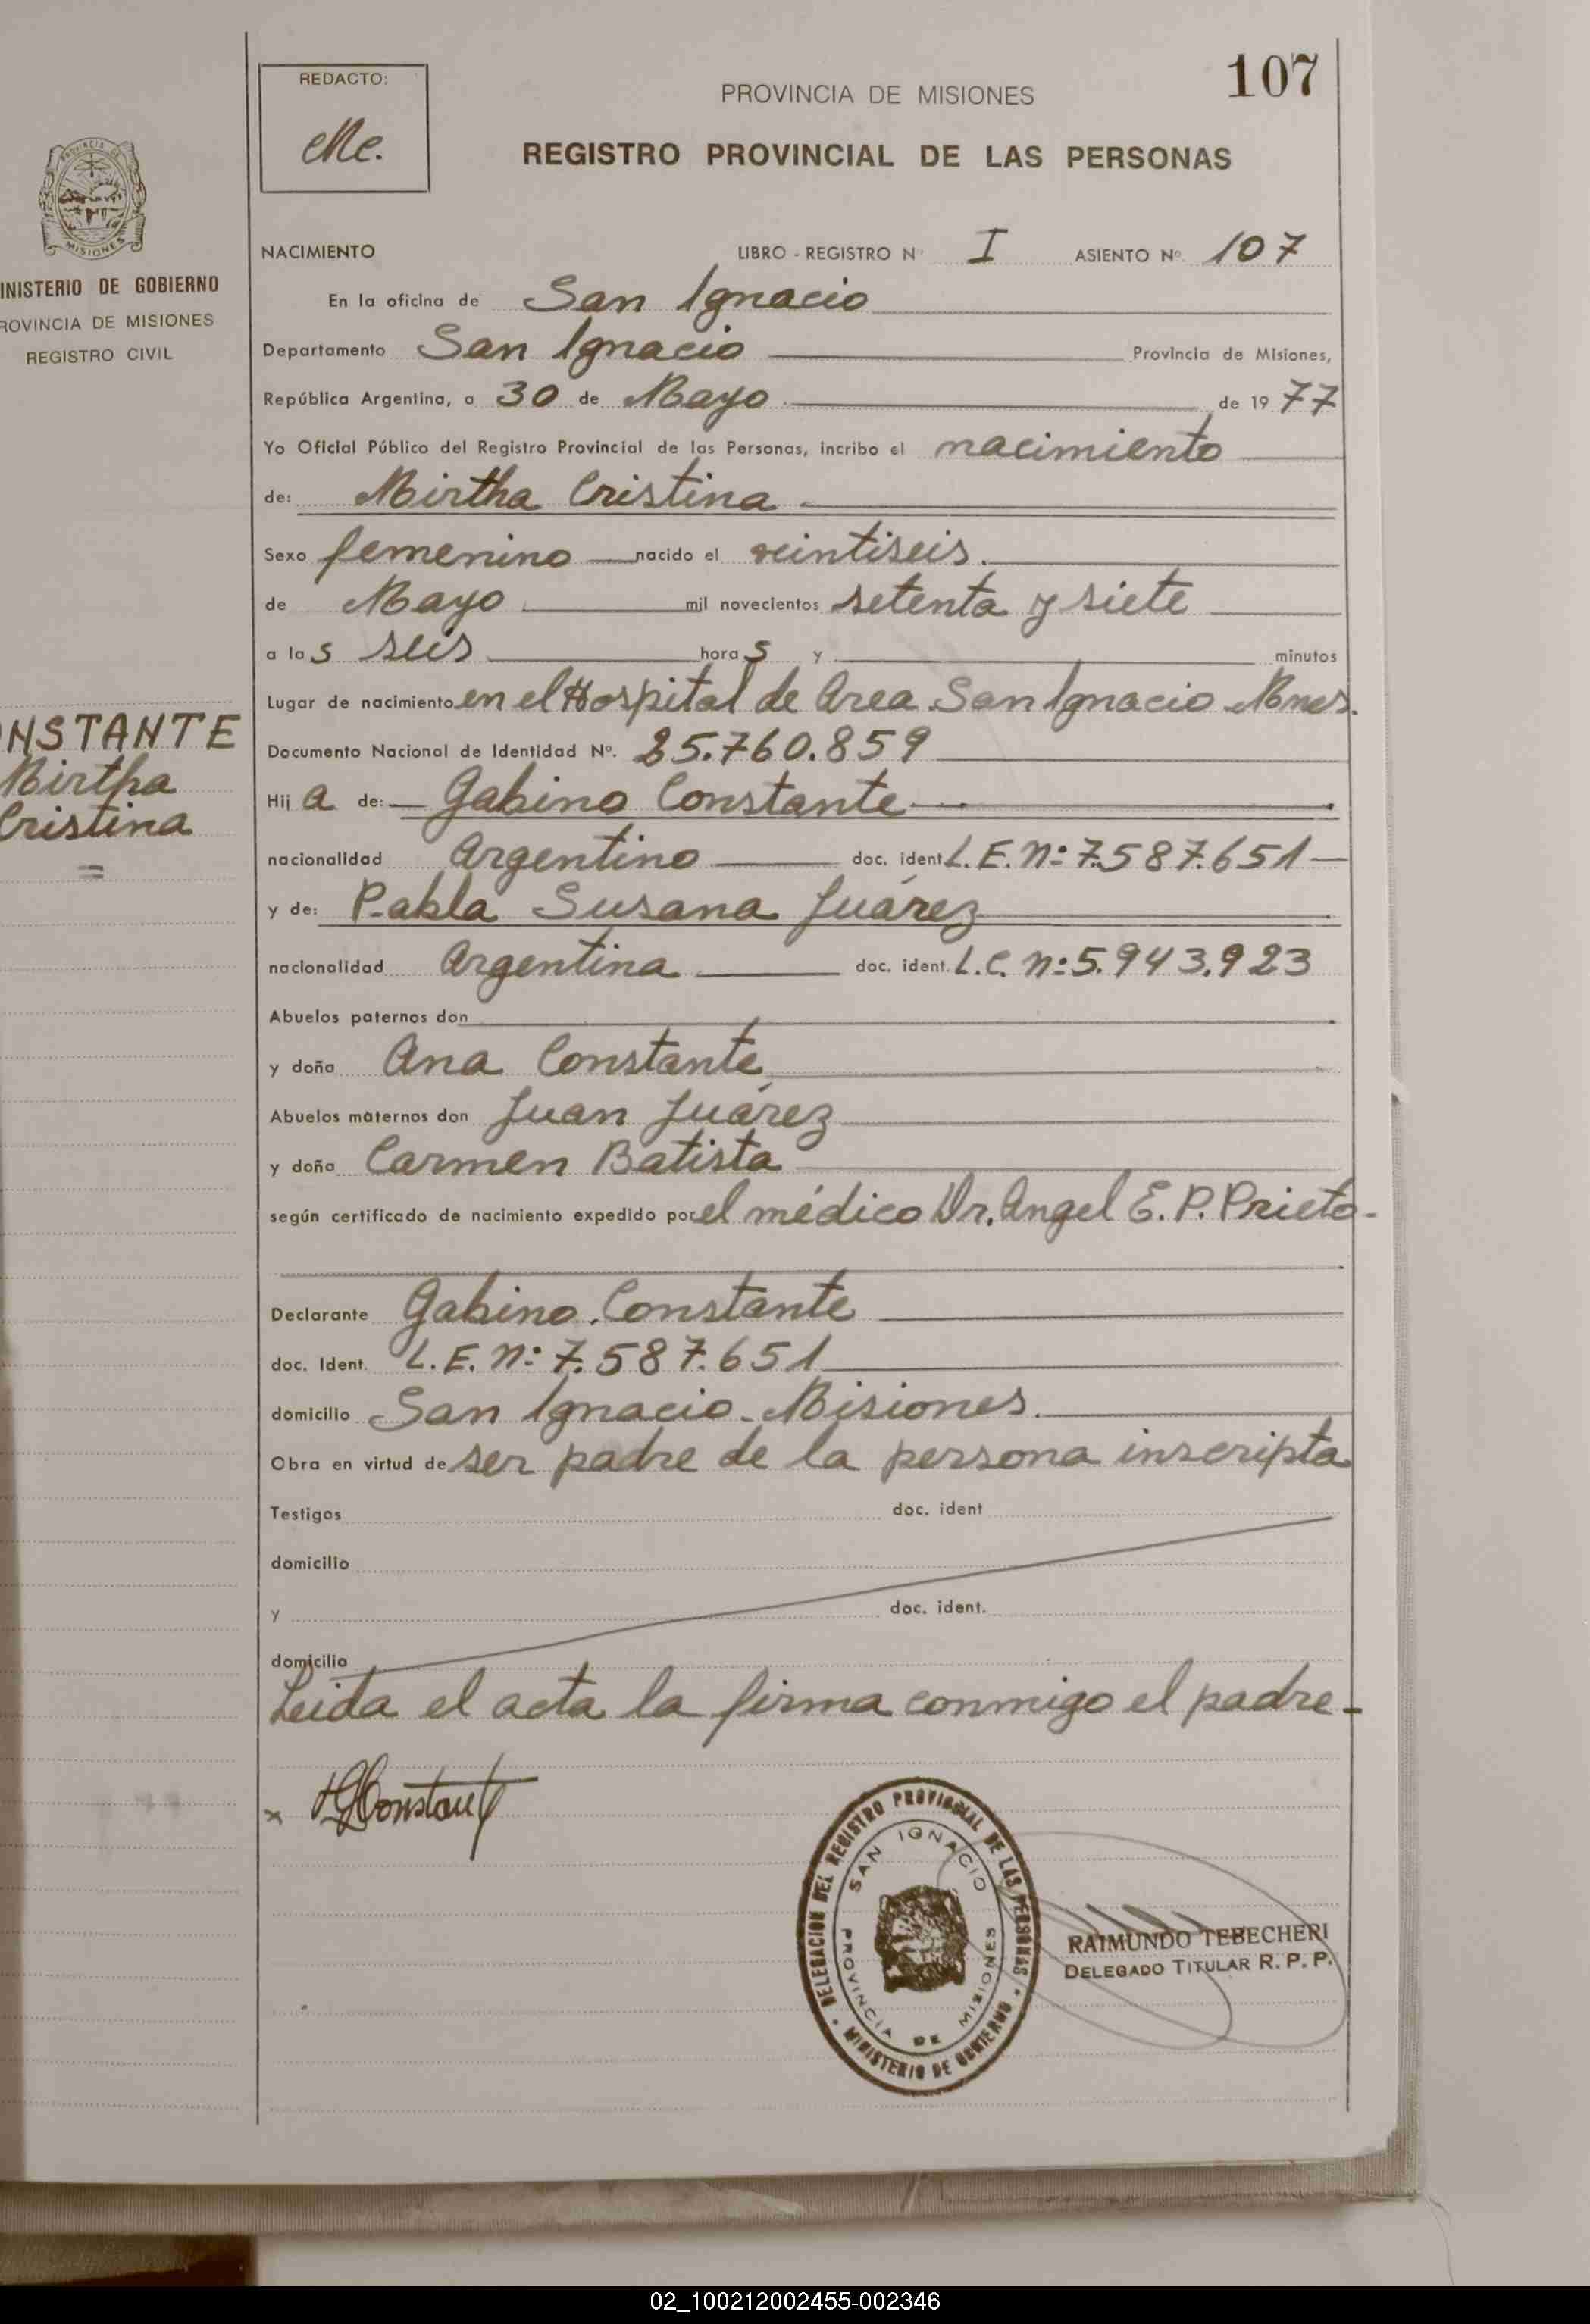 107
REDACTO:
Me.
PROVINCIA DE MISIONES
REGISTRO PROVINCIAL DE LAS PERSONAS
PROVINCIA DE
MISIONES
INISTERIO DE GOBIERNO
ROVINCIA DE MISIONES
REGISTRO CIVIL
NACIMIENTO LIBRO - REGISTRO Nº I ASIENTO Nº. 107
En la oficina de San Ignacio
Departamento San Ignacio Provincia de Misiones,
República Argentina, a 30 de Mayo de 1977
Yo Oficial Público del Registro Provincial de las Personas, incribo el nacimiento
de: Mirtha Cristina
Sexo femenino nacido el veintiseis.
de Mayo mil novecientos setenta y siete
a las seis horas y minutos
Lugar de nacimiento en el Hospital de Area San Ignacio Mnes.
ONSTANTE
Mirtha
Cristina
Documento Nacional de Identidad Nº. 25.760.859
Hija de: Gabino Constante
nacionalidad Argentino doc. ident. L.E. Nº: 7.587.651
y de: Pabla Susana Juárez
nacionalidad Argentina doc. ident. L.C. Nº: 5.943.923
Abuelos paternos don
y doña Ana Constante
Abuelos maternos don Juan Juárez
y doña Carmen Batista
según certificado de nacimiento expedido por el médico Dr. Angel E. P. Prieto-
Declarante Gabino Constante
doc. Ident. L.E. Nº: 7.587.651
domicilio San Ignacio. Misiones.
Obra en virtud de ser padre de la persona inscripta
Testigos doc. ident
domicilio
y doc. ident.
domicilio
Leida el acta la firma conmigo el padre-
x GConstante
DELEGACION DEL REGISTRO PROVINCIAL DE LAS PERSONAS
MINISTERIO DE GOBIERNO
SAN IGNACIO
PROVINCIA DE MISIONES
RAIMUNDO TEBECHERI
DELEGADO TITULAR R. P. P.
02_100212002455-002346